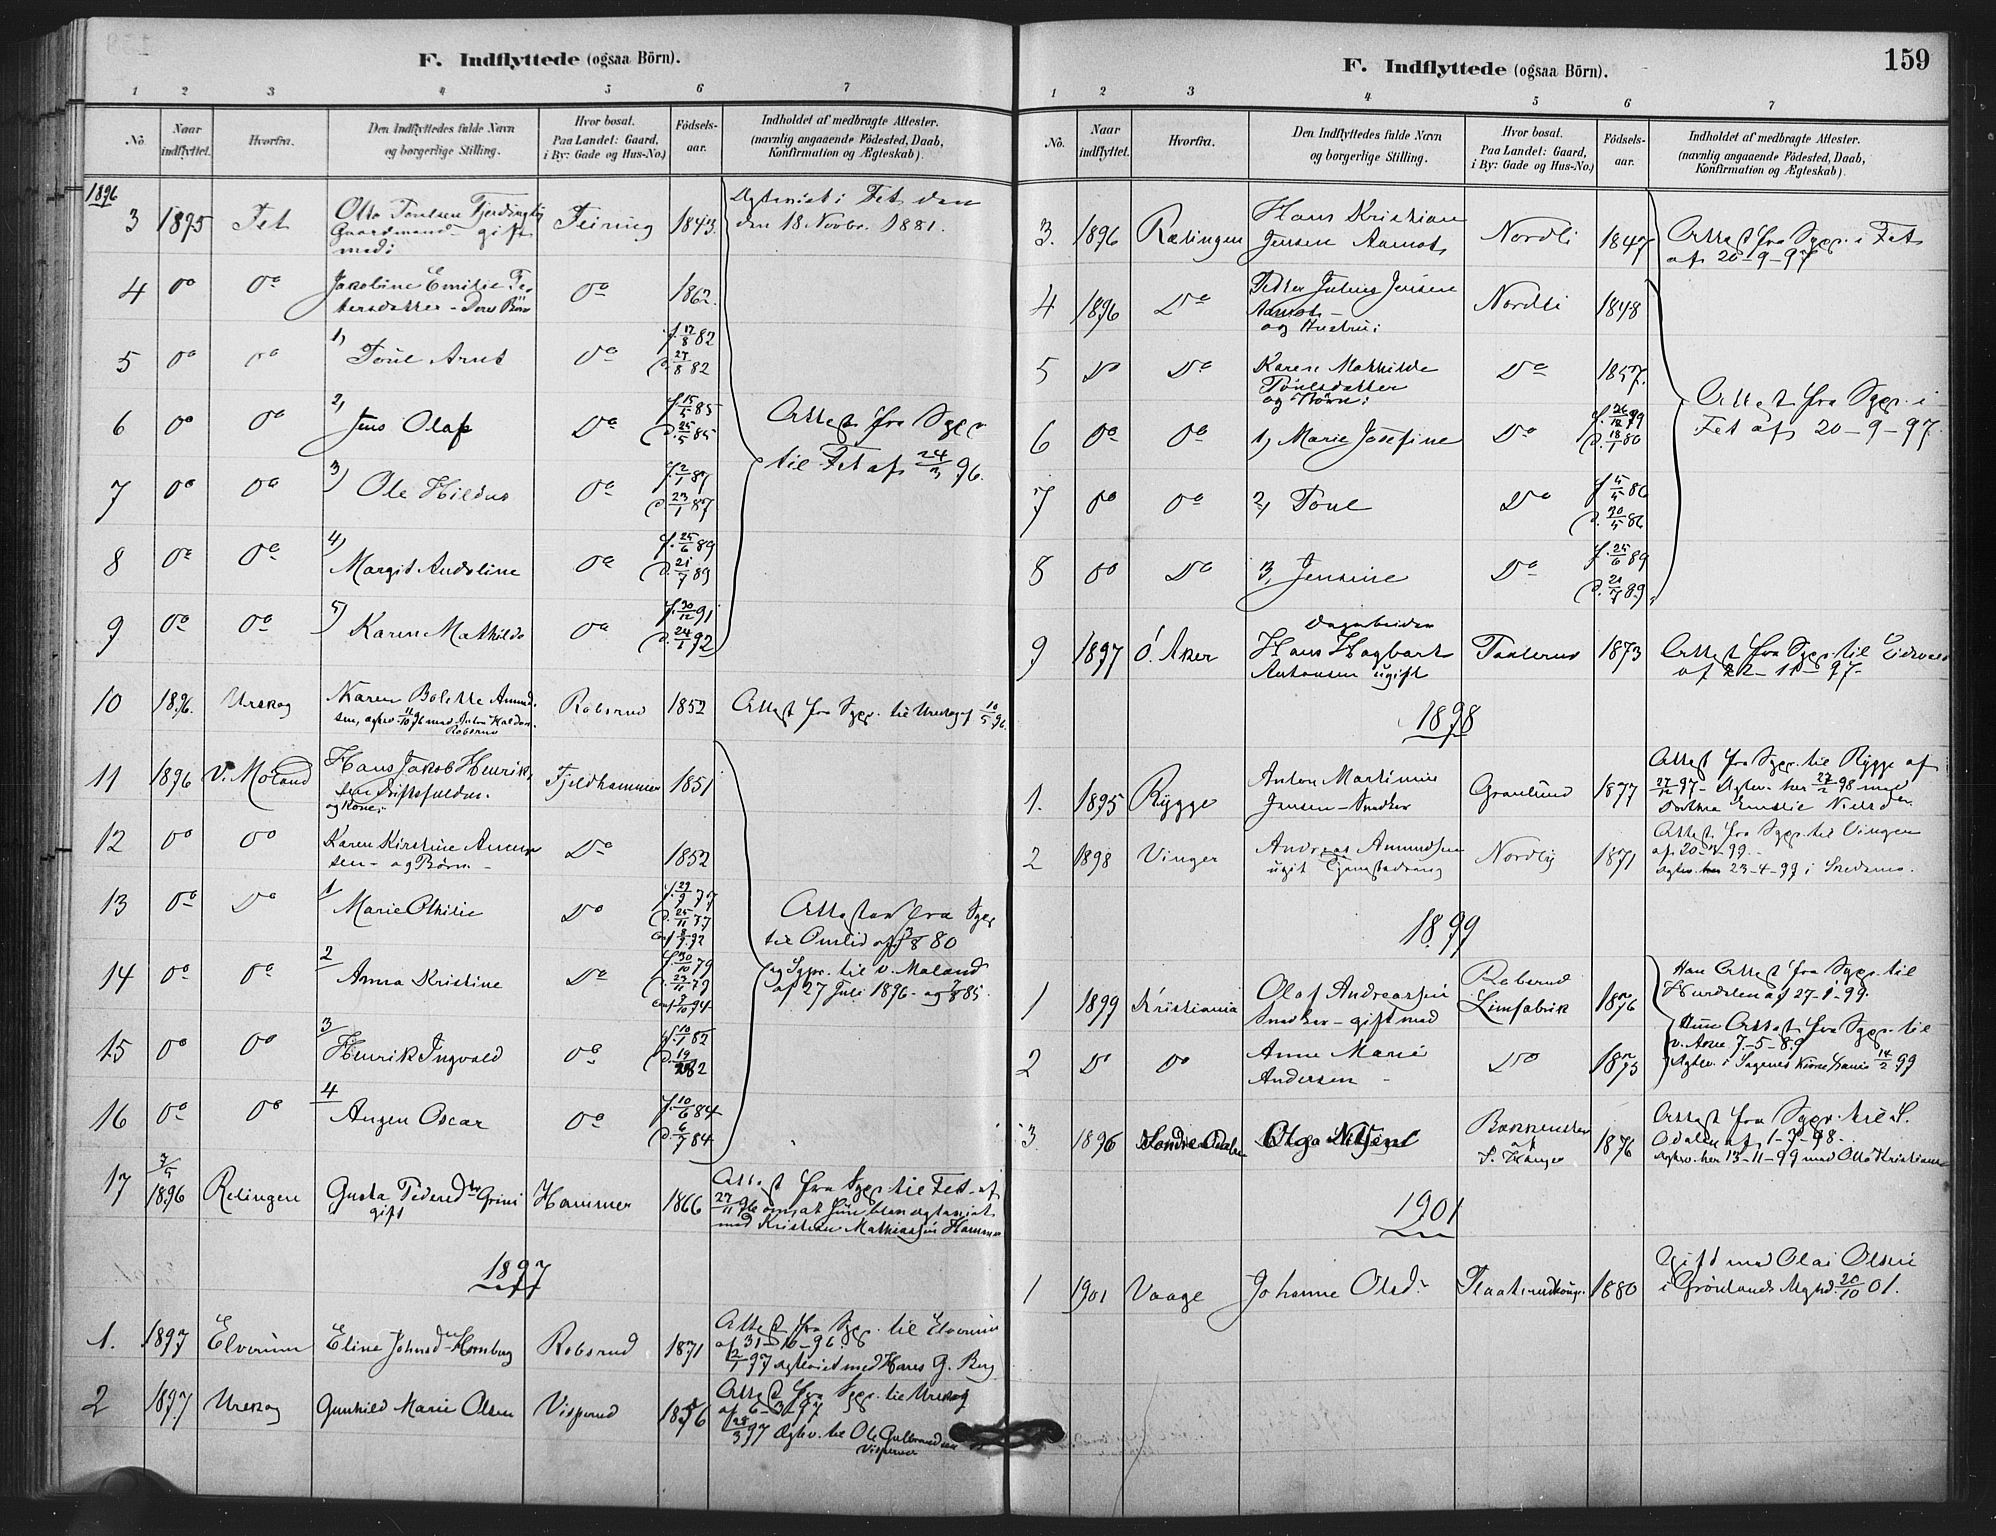 F. Indflyttede (ogsaa Börn).
1 2 3 4 5 6 7
No.
Naar indflyttet.
Hvorfra.
Den Indflyttedes fulde Navn og borgerlige Stilling.
Hvor bosat. Paa Landet: Gaard, i By: Gade og Hus-No.)
Födsels-aar.
Indholdet af medbragte Attester. (navnlig angaaende Födested, Daab, Konfirmation og Ægteskab).
1896
3 1895 Fet Otto Paulsen Gaardmand - gift med: Feiring 1843. Ægteviet i Fet den
den 18 Novbr. 1881.
4 Do Do Jakobine Emilie Petersdatter - Deres Börn Do 1862.
5 Do Do 1) Poul Arnt Do f. 17/8 82 d. 27/8 82
6 Do Do 2) Jens Olaf Do f. 15/5 85 d. 25/5 85 Attest fra Sgpr.
til Fet af 24/3 96.
7 Do Do 3) Ole Hildus Do f. 2/1 87 d. 23/1 87
8 Do Do 4) Margit Andoline Do f. 25/6 89 d. 21/7 89
9 Do Do 5) Karen Mathilde Do f. 30/12 91 d. 24/1 92
10 1896. Urskog Karen Bolette Amundsen, Robsrud 1852 Attest fra Sgpr. til Urskog af 10/5 96.
11 1896 V. Moland Hans Jakob Henriksen og Kone: Fjeldhammer 1851
12 Do Do Karen Kirstine - og Börn - Do 1852
13 Do Do 1/ Marie Othilie Do Attester fra Sgpr
14 Do Do 2/ Anna Kristine Do f. 30/10 79 og Sgpr. til v. Moland
af 27 Juli 1896 - og 85.
15 Do Do 3/ Henrik Ingvald Do f. 10/1 82
16 Do Do 4/ Oscar Do f. 10/6 84 d. 6/7 84
17 1896 Relingen Gusta gift Hammer 1866 Attest fra Sgpr. til Fet af
27/11 96 om at hun blev ægteviet
med Kristian Mathiassen Hammer
1897
1. 1897 Elverum Eline Johnsd. Hornberg Robsrud 1871 Attest fra Sgpr. til Elverum
af 31-10-96.
ægteviet med Hans G. Berg
2 1897 Urskog Gunhild Marie Olsen Visperud Attest fra Sgpr. til Urskog
af 6-3-97
28/3 97 Ægtev. til Ole Gulbrandsen
F. Indflyttede (ogsaa Börn).
159
1 2 3 4 5 6 7
No.
Naar indflyttet.
Hvorfra.
Den Indflyttedes fulde Navn og borgerlige Stilling.
Hvor bosat. Paa Landet: Gaard, i By: Gade og Hus-No.)
Födsels-aar.
Indholdet af medbragte Attester. (navnlig angaaende Födested, Daab, Konfirmation og Ægteskab).
3. 1896 Rælingen Hans Kristian Jensen Aamot Nordli 1847 Attest fra Sgpr. i Fet
af 20-9-97
4 1896 Do Petter Julius Jensen Aamot - og Hustru: Nordli 1848
5 Do Do Karen Mathilde Poulsdatter og Börn: Do 1857. Attest fra Sgpr. i
Fet af 20-9-97.
6 Do Do 1) Marie Josefine Do f. 26/12 79 d. 18/1 80
7 Do Do 2) Poul Do
8 Do Do 3) Jensine Do f. 25/6 89 d. 21/7 89.
9 1897 Ö. Aker Hans Hagbart Antonsen ugift 1873 Attest fra Sgpr. til Eidsvold
1898
1. 1895 Rygge Anton Martinius Jensen - Snedker Granlund 1877 Attest fra Sgpr. til Rygge af
27/12 97 - Ægtev. her 27/2 98 med
2 1898 Vinger Andreas Amundsen ugift Nordby 1871 Attest fra Sgpr. til Vinger
Ægtev. her 23-4-99 i Skedsmo.
1899
1 1899 Kristiania Olaf Andreassen Snedker - gift med Robsrud Limfabrik 1876 Han Attest fra Sgpr. til
Hurdalen af 27-1-99.
2 Do Do Anne Marie Andersen - Do Hun Attest fra Sgpr. til
7-5-89
Ægtev. i Sagenes Kirke 14/2 99
3 1896 Söndre Odalen Olga Nilsen 1876 Attest fra Sgpr. til S.
Odalen af 1-3-98.
Ægtev. her 13-11-99 med Otto Kristiansen
1901
1 1901 Vaage Johanne Olsd. 1880 Gift med Olai Olsen
i Grönlands Menighed. 20/10 01.